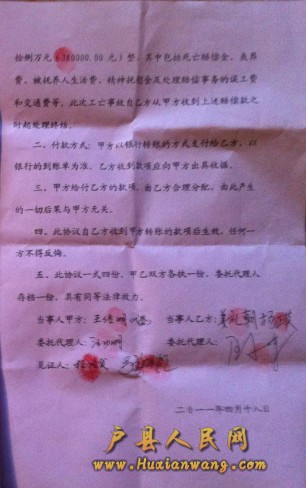 拾捌万元 380000.00 元）整，其中包括死亡赔偿金、丧葬
费、被抚养人生活费、精神抚慰金及处理赔偿事务的误工费
和交通费等，此次工亡事故自乙方从甲方收到上述赔偿款之
时起处理终结。
二、付款方式：甲方以银行转账的方式支付给乙方，以
银行的到账单为准。乙方收到款项应向甲方出具收据。
三、甲方给付乙方的款项，由乙方合理分配，由此产生
的一切后果与甲方无关。
四、此协议自乙方收到甲方转账的款项后生效，任何一
方不得反悔。
五、此协议一式四份，甲乙双方各执一份，委托代理人
存档一份，具有同等法律效力。
当事人甲方： 当事人乙方：
委托代理人： 委托代理人：
见证人：
二〇一一年四月十八日
户县人民网
www.Huxianwang.com